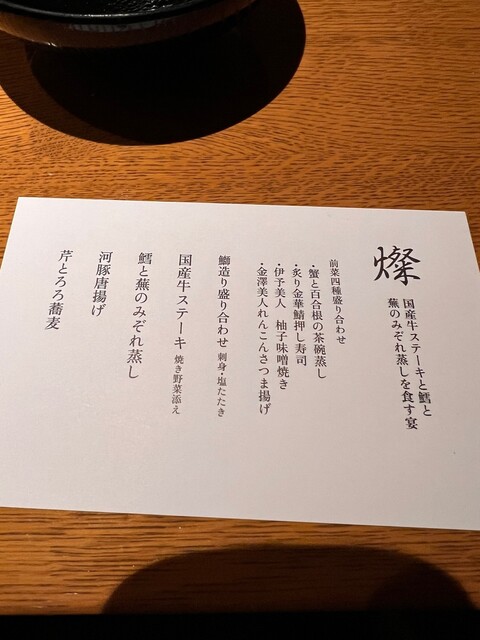 燦
国産牛ステーキと鱈と
蕪のみぞれ蒸しを食す宴
前菜四種盛り合わせ
・蟹と百合根の茶碗蒸し
・炙り金華鯖押し寿司
・伊予美人 柚子味噌焼き
・金澤美人れんこんさつま揚げ
鰤造り盛り合わせ 刺身・塩たたき
国産牛ステーキ 焼き野菜添え
鱈と蕪のみぞれ蒸し
河豚唐揚げ
芹とろろ蕎麦